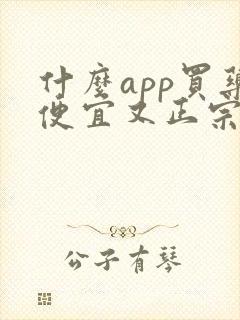 什麼app買
便宜又正宗
公子有琴